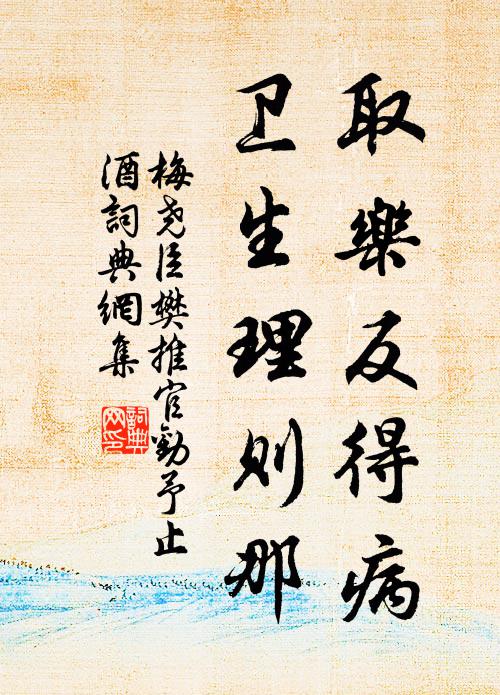 取樂反得病
卫生理则那
梅尧臣樊推官勸予止
酒詞典網集
詞典
网印